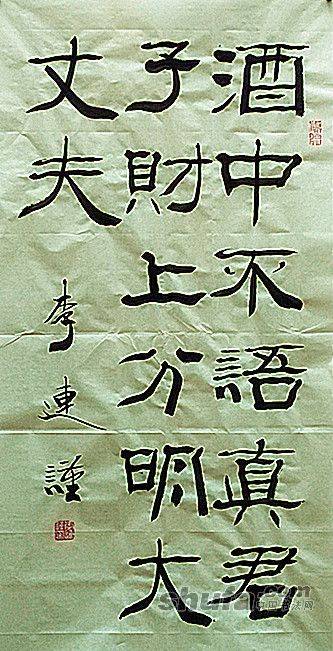 酒中不語真君
子財上分明大
丈夫
李連謹